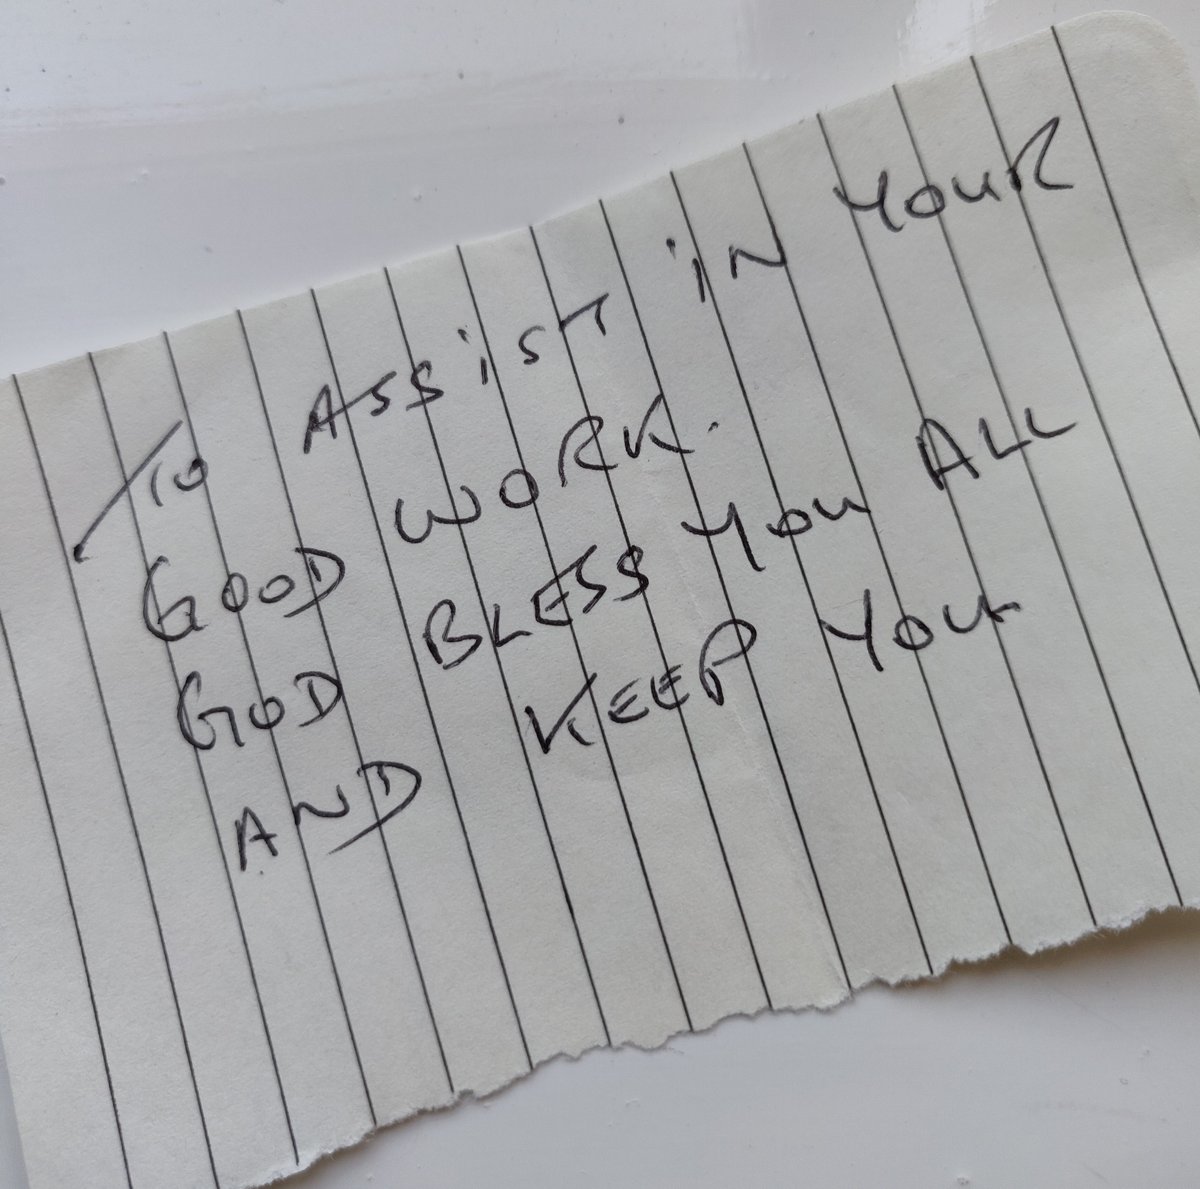 TO ASSiST iN YOUR
GOOD WORK.
GOD BLESS YOU ALL
AND KEEP YOU